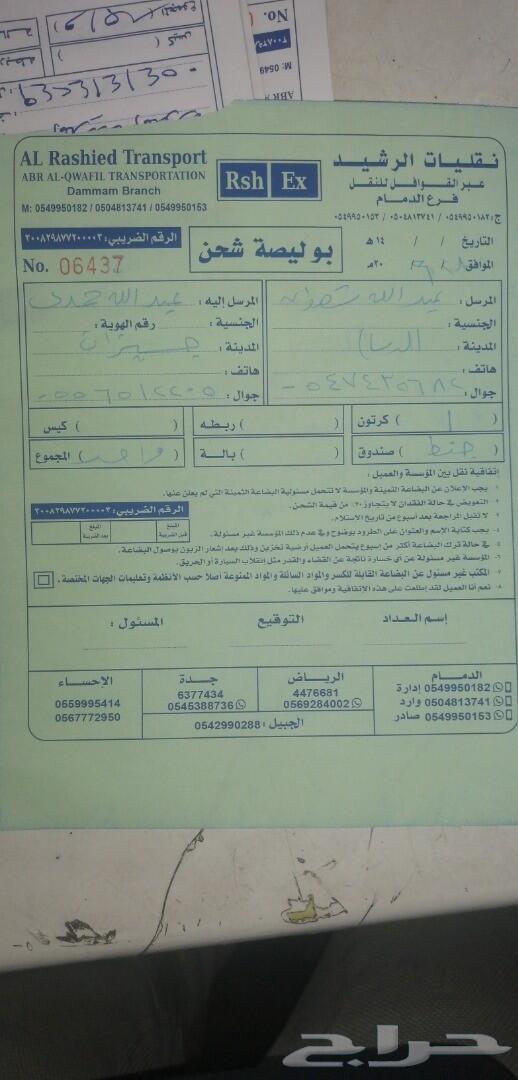 No.
M: 0549
AL Rashied Transport
ABR AL-QWAFIL TRANSPORTATION
Dammam Branch
M: 0549950182 / 0504813741 / 0549950153
Rsh Ex
نقليات الرشيد
عبر القوافل للنقل
فرع الدمام
ج: ٠٥٤٩٩٥٠١٨٢ / ٠٥٠٤٨١٣٧٤١ / ٠٥٤٩٩٥٠١٥٣
الرقم الضريبي: ٣٠٠٨٢٩٨٧٧٢٠٠٠٠٣
No. 06437
بوليصة شحن
التاريخ / / ١٤هـ
الموافق / / ٢٠م
المرسل: عبد الله
الجنسية:
المدينة:
هاتف:
جوال:
المرسل إليه: عبد الله حمدي
الجنسية: رقم الهوية:
المدينة: جيزان
هاتف:
جوال:
( ١ ) كرتون
( ) ربطه
( ) كيس
( ) صندوق
( ) بالة
( واحد ) المجموع
إتفاقية نقل بين المؤسسة والعميل:
يجب الإعلان عن البضاعة الثمينة والمؤسسة لا تتحمل مسئولية البضاعة الثمينة التي لم يعلن عنها.
التعويض في حالة الفقدان لا يتجاوز ٣٠٪ من قيمة الشحن.
لا تقبل المراجعة بعد أسبوع من تاريخ الاستلام.
يجب كتابة الإسم والعنوان على الطرود بوضوح وفي عدم ذلك المؤسسة غير مسئولة.
في حالة ترك البضاعة أكثر من إسبوع يتحمل العميل أرضية تخزين وذلك بعد إشعار الزبون بوصول البضاعة.
المؤسسة غير مسئولة عن أي خسارة ناتجة عن القضاء والقدر مثل إنقلاب السيارة أو الحريق.
المكتب غير مسئول عن البضاعة القابلة للكسر والمواد السائلة والمواد الممنوعة أصلاً حسب الأنظمة وتعليمات الجهات المختصة.
نعم أنا العميل لقد إطلعت على هذه الاتفاقية وموافق عليها.
الرقم الضريبي: ٣٠٠٨٢٩٨٧٧٢٠٠٠٠٣
المبلغ قبل الضريبة
المبلغ بعد الضريبة
إسم العداد
التوقيع
المسئول:
الدمام
0549950182 إدارة
0504813741 وارد
0549950153 صادر
الرياض
4476681
0569284002
جدة
6377434
0545388736
الجبيل: 0542990288
الإحساء
0559995414
0567772950
حراج